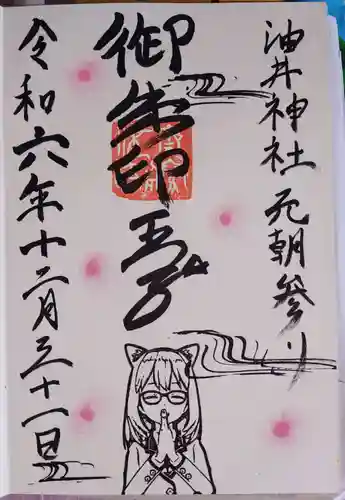 油井神社 元朝参り
御朱印王子
令和六年十二月三十一日